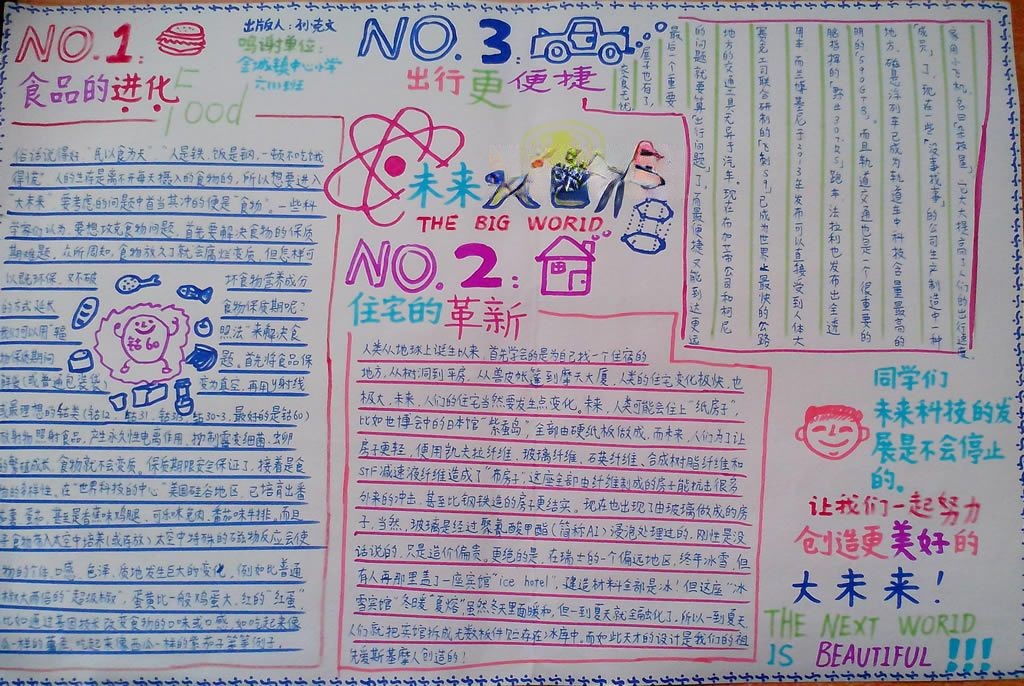 NO.1
食品的进化
Food
出版人：
鸣谢单位：
金城镇中心小学
俗话说得好"民以食为天""人是铁，饭是钢，一顿不吃饿
得慌"人的生存是离不开每天摄入的食物的，所以想要进入
大未来"要考虑的问题中首当其冲的便是"食物"。一些科
学家们以为，要想攻克食物问题，首先要解决食物的保质
期难题，众所周知，食物放久了就会腐烂变质，但怎样可
以既环保，又不破 坏食物营养成分
的方式延长 食物保质期呢？
我们可以用"辐 照法"来解决食
物保质期问 题，首先将食品保
鲜袋（或普通包装袋） 变为真空，再用γ射线
钴60
或最理想的钴类（钴12、钴31、钴30-3，最好的是钴60）
放射物照射食品，产生永久性电离作用，抑制霉变细菌、虫卵
的繁殖成长，食物就不会变质。保质期限安全保证了，接着是食
物的多样性，在"世界科技的中心"美国硅谷地区，已培育出番
甚至是香蕉味鸡腿，可乐味兔肉、番茄味牛排，而且
太空中特殊的磁物反应会使
物的个体，口感，色泽，质地发生巨大的变化，例如比普通
辣椒大两倍的"超级椒"，蛋黄比一般鸡蛋大、红的"红蛋"
NO.3
出行更便捷
衣食无忧
房子也有了，
最后一个重要
的问题就要算"出行问题"了，有最便捷又能到达更远
地方的交通工具无异于汽车。现在布加蒂公司和柯尼
赛克公司联合研制的"飞刺S9"已成为世界上最快的公路
用车，而兰博基尼于2013年发布可以直接受到人体大
脑指挥的"野牛307RS"跑车，法拉利也发布出全透
明的"599GTB。而且轨道交通也是一个很重要的
地方，磁悬浮列车已成为轨道车中科技含量最高的
"成员"了，现在一些"没事找事"的公司生产制造中一种
家用小飞机，名曰"，它大大提高了人们的出行速度
未来大世界
THE BIG WORLD
NO.2：
住宅的革新
人类从地球上诞生以来，首先学会的是为自己找一个住宿的
地方，从树洞到平房，从兽皮帐篷到摩天大厦，人类的住宅变化极快，也
极大，未来，人们的住宅当然要发生点变化。未来，人类可能会住上"纸房子"，
比如世博会中的日本馆"紫蚕岛"，全部由硬纸板做成，而未来，人们为了让
房子更轻，使用凯夫拉纤维、玻璃纤维、石英纤维、合成树脂纤维和
STF减速液纤维造成了"布房子"，这座全部由纤维制成的房子能抗击很多
外来的冲击，甚至比钢铁造的房子更结实。现在也出现了由玻璃做成的房
子，当然，玻璃是经过聚氨酸甲酯（简称AI）浸泡处理过的，刚性是没
话说的，只是造价偏贵。更绝的是，在瑞士的一个偏远地区，终年冰雪，但
有人再那里盖了一座宾馆"ice hotel"，建造材料全部是冰！但这座"冰
雪宾馆"冬暖"夏熔"虽然冬天里面暖和，但一到夏天就全融化了，所以一到夏天
人们就把宾馆拆成无数板件贮存在冰库中。而如此天才的设计是我们的祖
先爱斯基摩人创造的！
同学们
未来科技的发
展是不会停止
的。
让我们一起努力
创造更美好的
大未来！
THE NEXT WORLD
IS BEAUTIFUL !!!